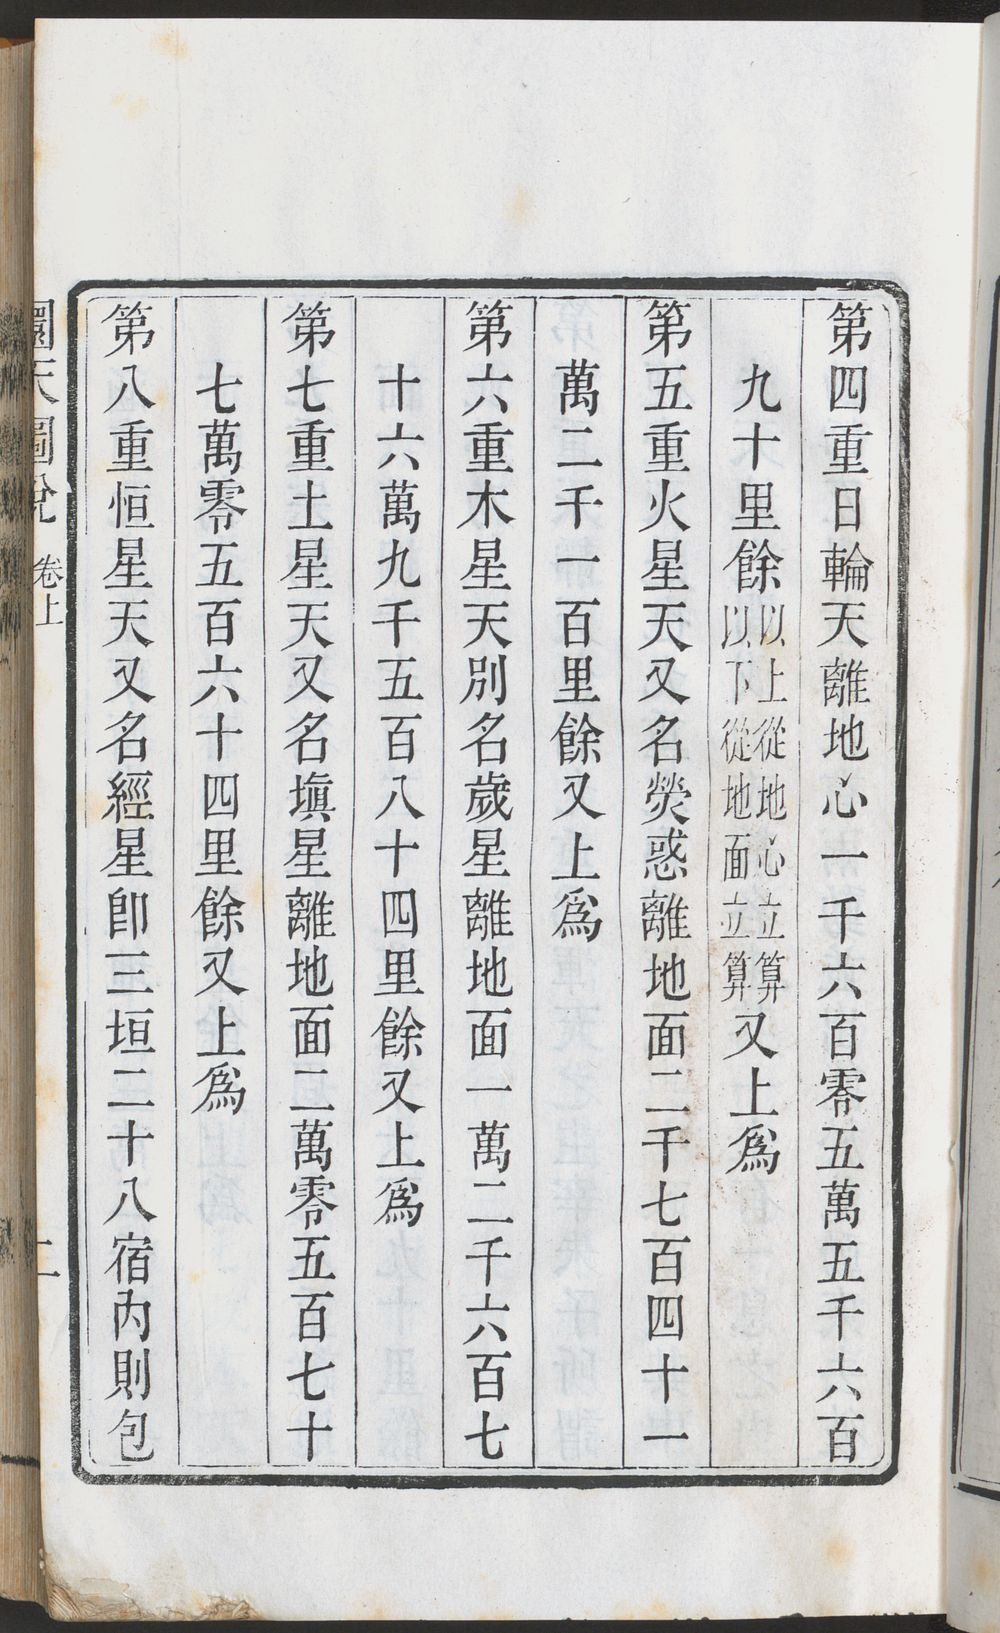 第四重日輪天離地心一千六百零五萬五千六百
九十里餘以上從地心立算以下從地面立算又上爲
第五重火星天又名熒惑離地面二千七百四十一
萬二千一百里餘又上爲
第六重木星天別名歲星離地面一萬二千六百七
十六萬九千五百八十四里餘又上爲
第七重土星天又名塡星離地面二萬零五百七十
七萬零五百六十四里餘又上爲
第八重恒星天又名經星卽三垣二十八宿內則包
圜天圖說 卷上